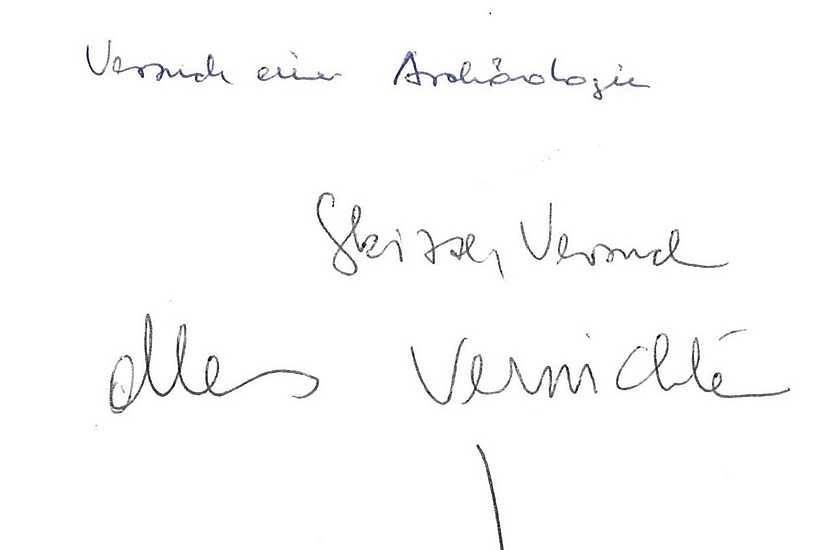 Versuch einer Archäologie
Skizze, Versuch
alles Vernichte